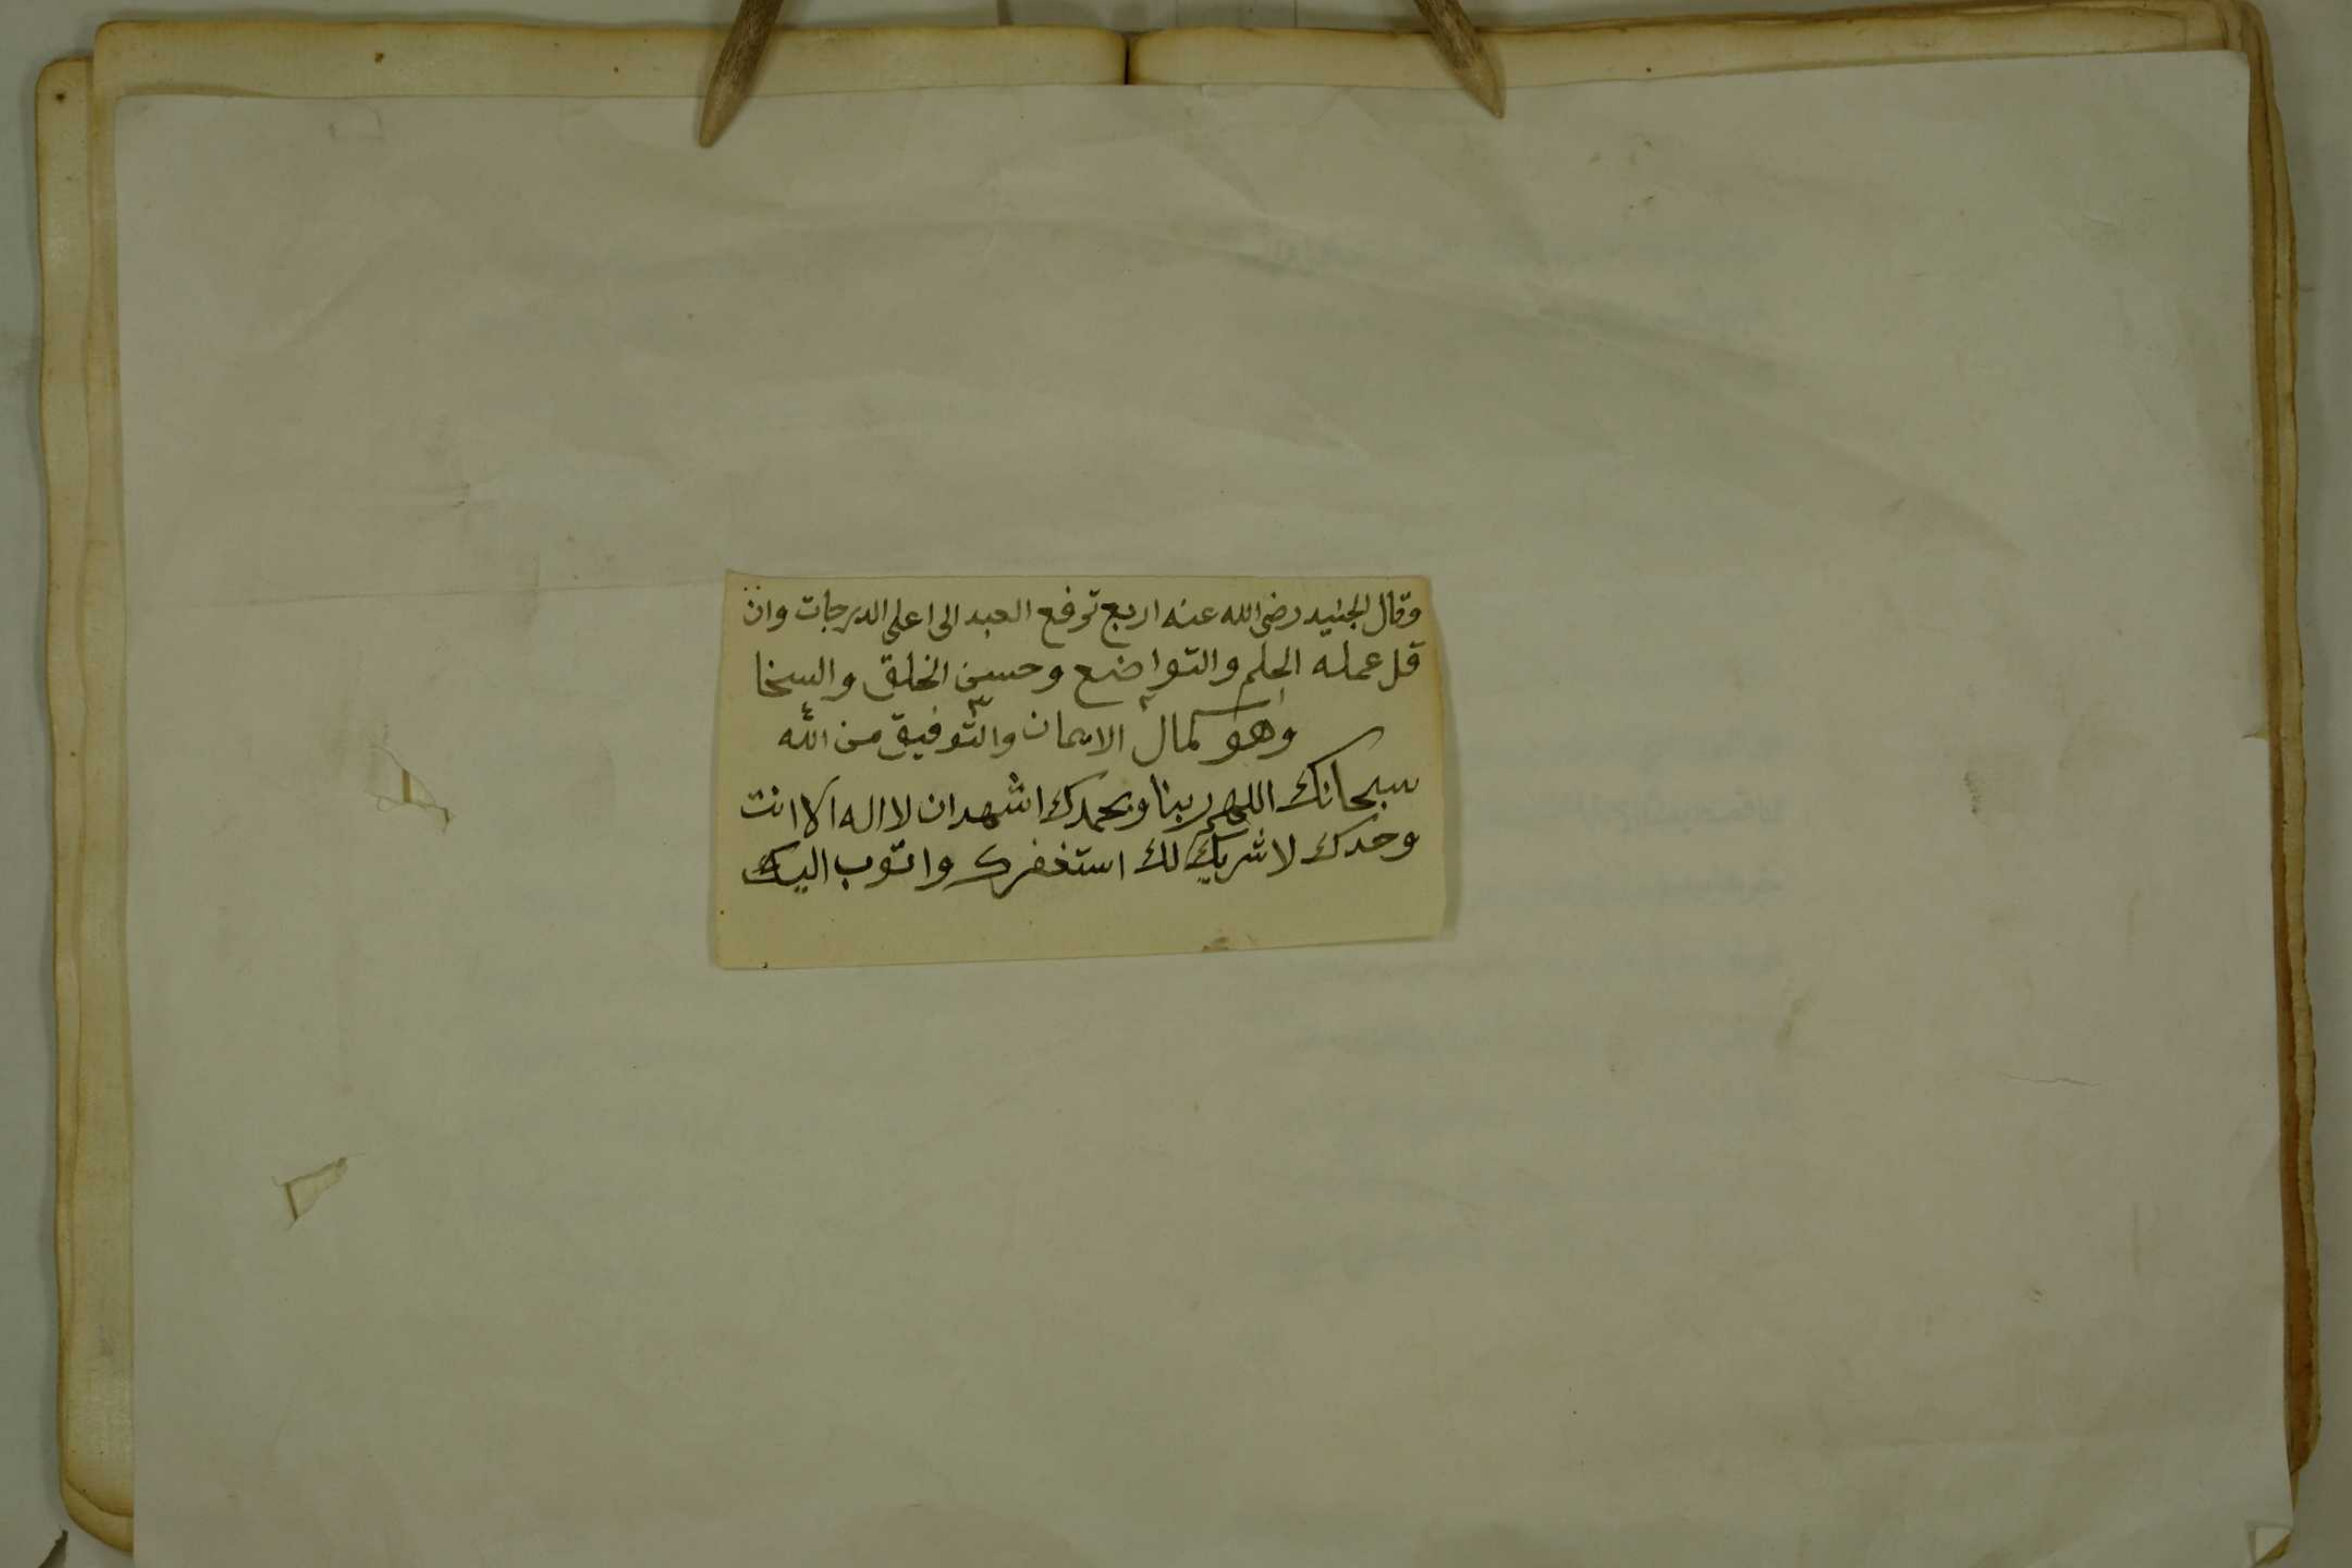 وقال الجنيد رضي الله عنه اربع ترفع العبد الى اعلى الدرجات وان
قل عمله الحلم والتواضع وحسن الخلق والسخا
وهو كمال الايمان والتوفيق من الله
سبحانك اللهم ربنا وبحمدك اشهد ان لا اله الا انت
وحدك لا شريك لك استغفرك واتوب اليك